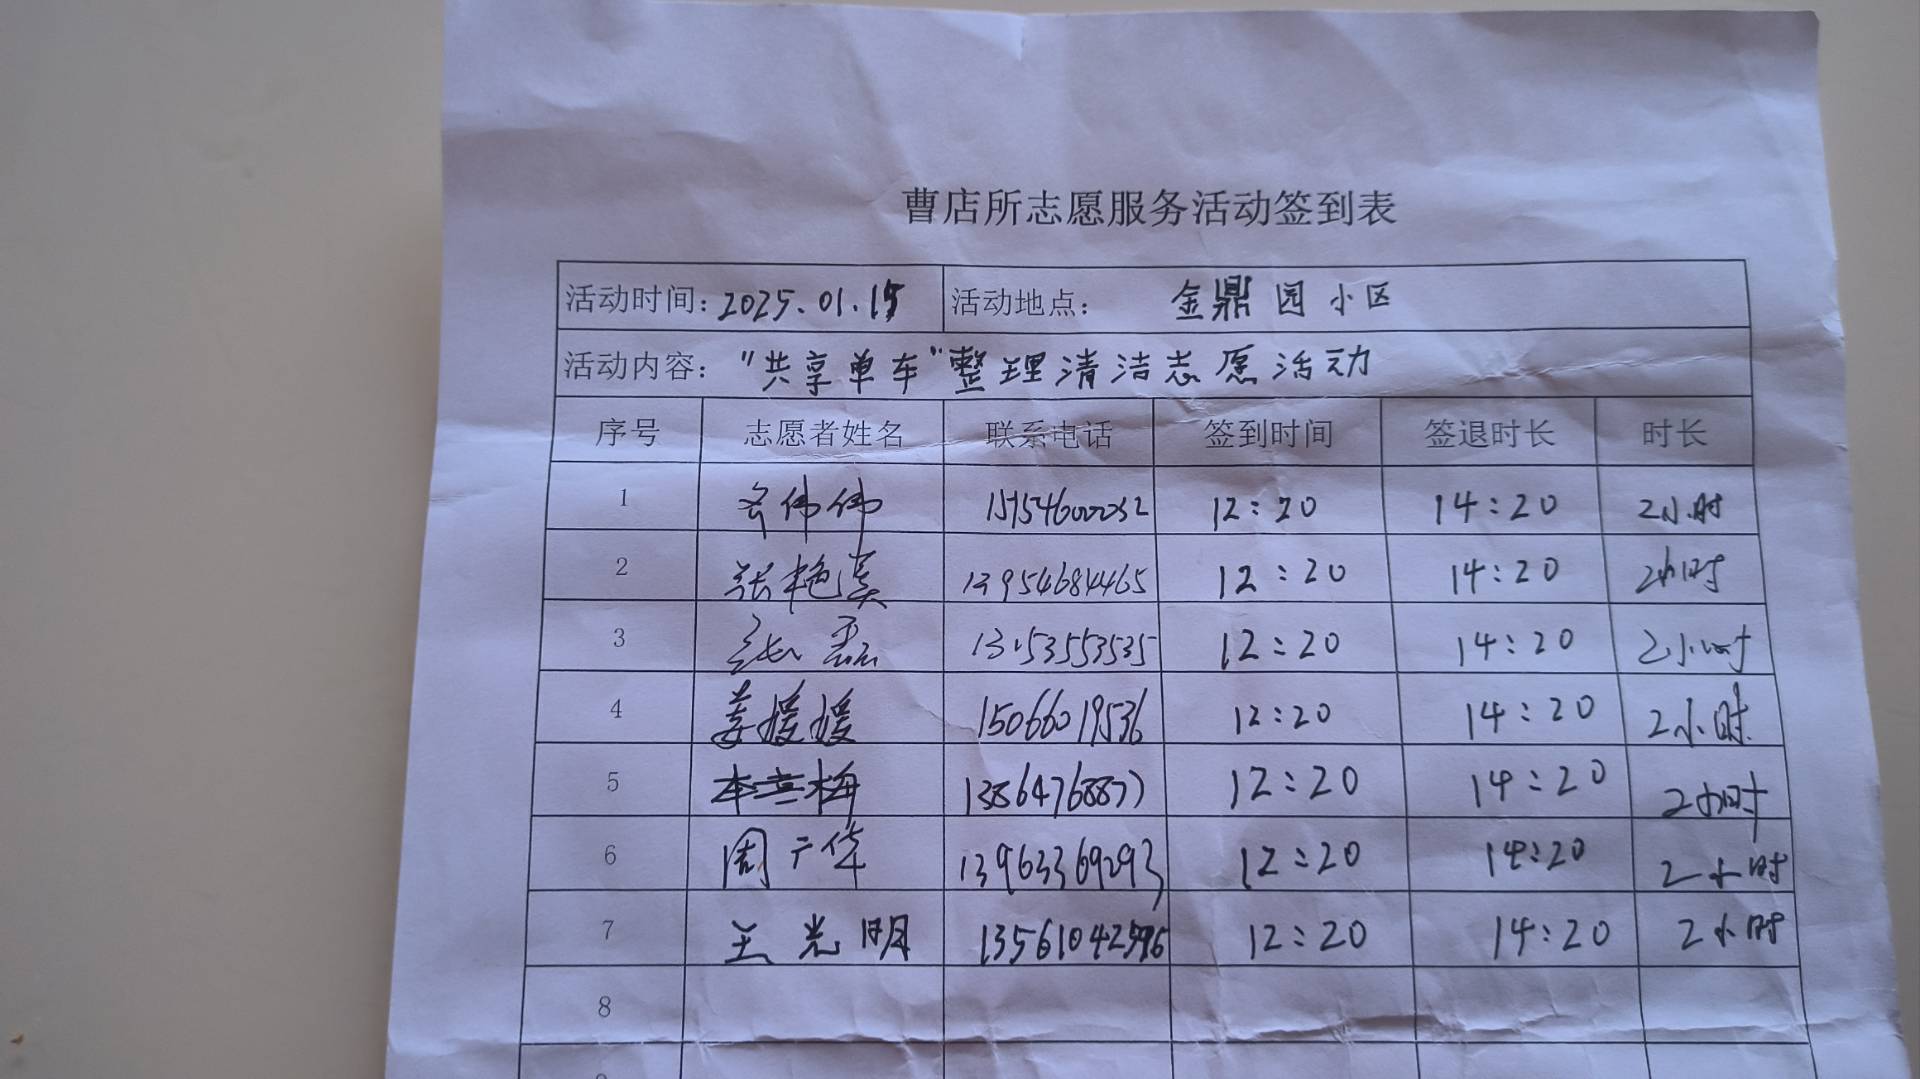 曹店所志愿服务活动签到表
活动时间：2025.01.15 活动地点： 金鼎园小区
活动内容：“共享单车”整理清洁志愿活动
序号 志愿者姓名 联系电话 签到时间 签退时长 时长
1 伟伟 12:20 14:20 2小时
2 张艳 13954684465 12:20 14:20 2小时
3 张磊 12:20 14:20 2小时
4 姜媛媛 15066019536 12:20 14:20 2小时
5 梅 13864768877 12:20 14:20 2小时
6 周广华 13963369293 12:20 14:20 2小时
7 王光明 12:20 14:20 2小时
8